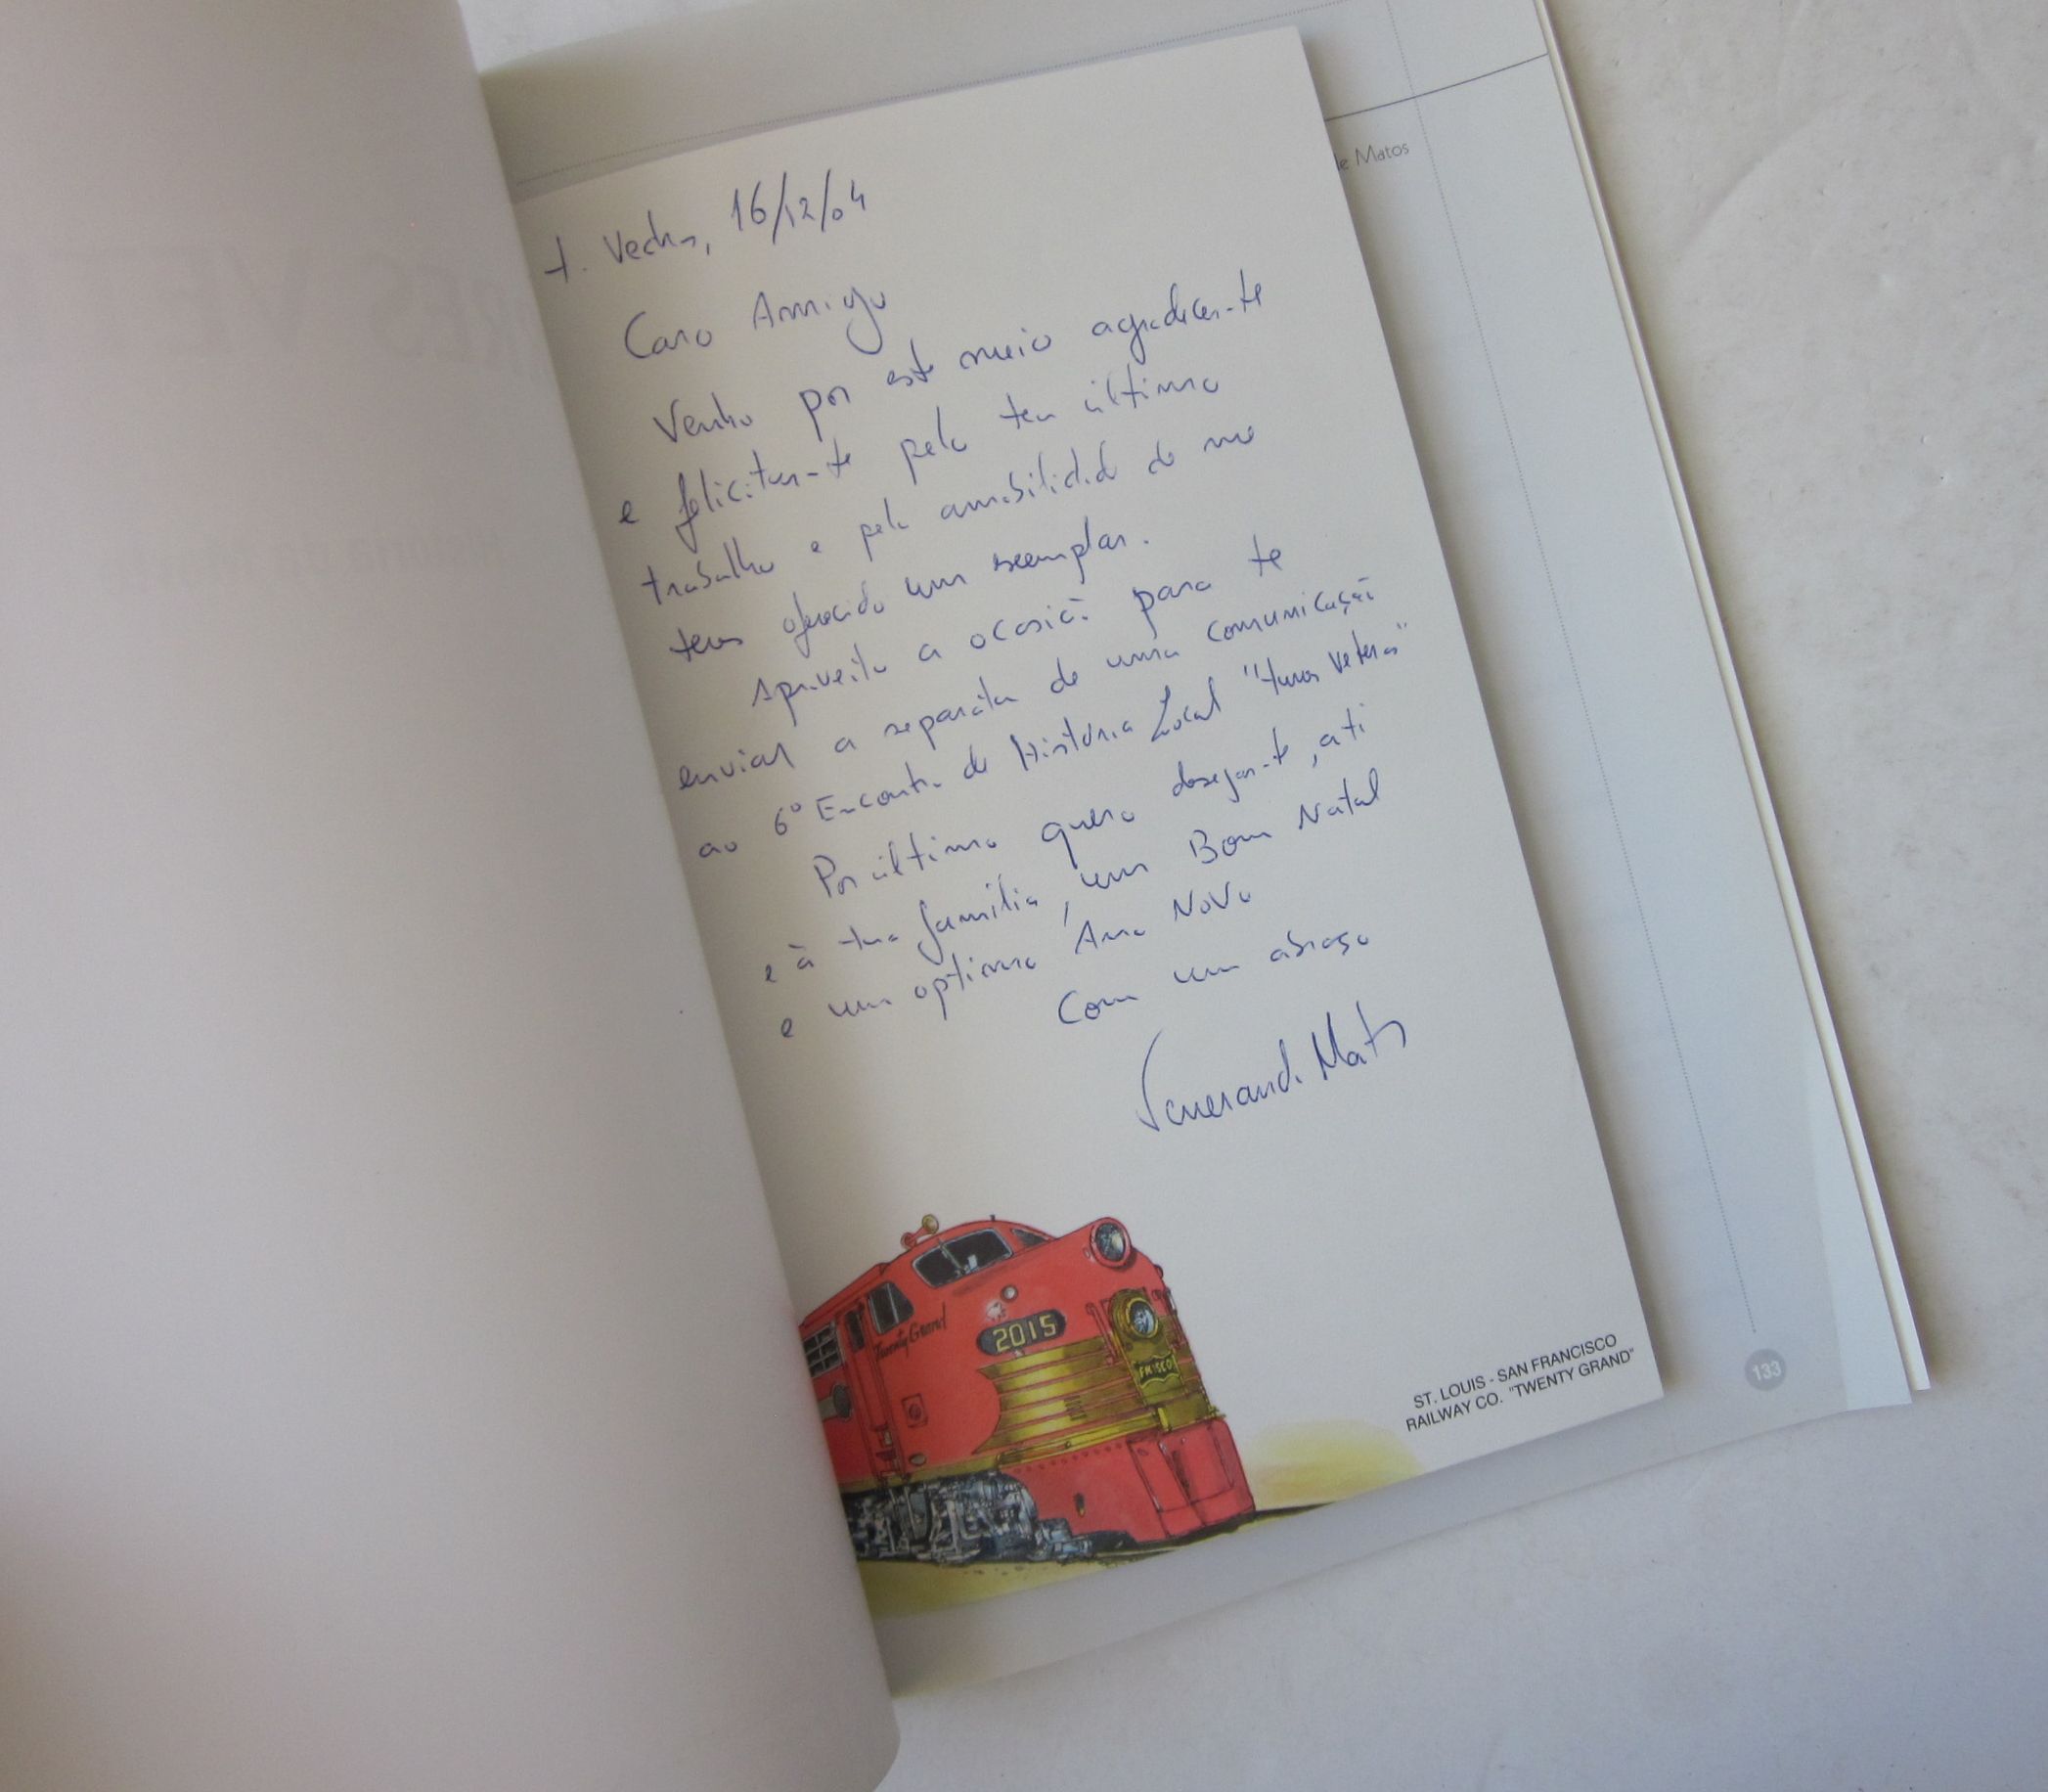 de Matos
T. Vedras, 16/12/04
Caro Amigo
Venho por este meio agradecer-te
e felicitar-te pelo teu último
trabalho e pela amabilidade de me
teres oferecido um exemplar.
Aproveito a ocasião para te
enviar a separata de uma comunicação
ao 6º Encontro de História Local "Turres Veteras"
Por último quero desejar-te, a ti
e à tua família, um Bom Natal
e um optimo Ano Novo
Com um abraço
Venerando Matos
Twenty Grand
2015
FRISCO
ST. LOUIS - SAN FRANCISCO
RAILWAY CO. "TWENTY GRAND"
133